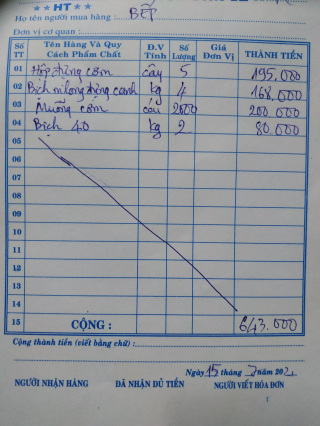 ★★ HT ★★
Họ tên người mua hàng : BẾP
Đơn vị cơ quan :
Số TT Tên Hàng Và Quy Cách Phẩm Chất Đ.V Tính Số Lượng Giá Đơn Vị THÀNH TIỀN
01 Hộp đựng cơm cây 5 195.000
02 Bịch nilong đựng canh kg 4 168.000
03 Muỗng cơm cái 2000 200.000
04 Bịch 40 kg 2 80.000
05
06
07
08
09
10
11
12
13
14
15 CỘNG : 643.000
Cộng thành tiền (viết bằng chữ) :
Ngày 15 tháng 7 năm
NGƯỜI NHẬN HÀNG ĐÃ NHẬN ĐỦ TIỀN NGƯỜI VIẾT HÓA ĐƠN